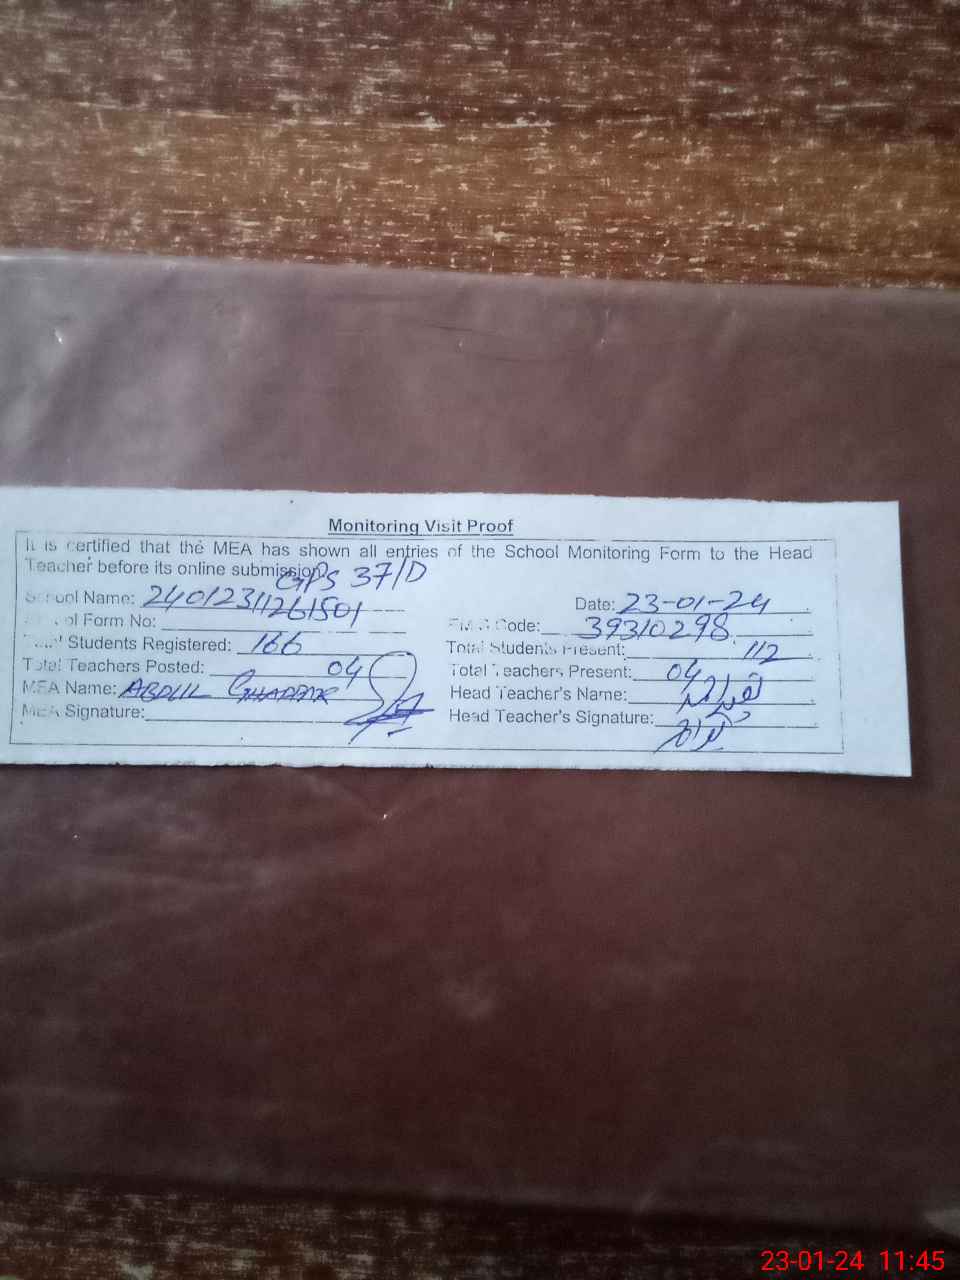 Monitoring Visit Proof
It is certified that the MEA has shown all entries of the School Monitoring Form to the Head
Teacher before its online submission.
GPS 37/D
School Name: 24012311261501 Date: 23-01-24
School Form No: EMIS Code: 39310298
Total Students Registered: 166 Total Students Present: 112
Total Teachers Posted: 04 Total Teachers Present: 04
MEA Name: ABDUL GHAFFAR Head Teacher's Name:
MEA Signature: Head Teacher's Signature:
23-01-24 11:45